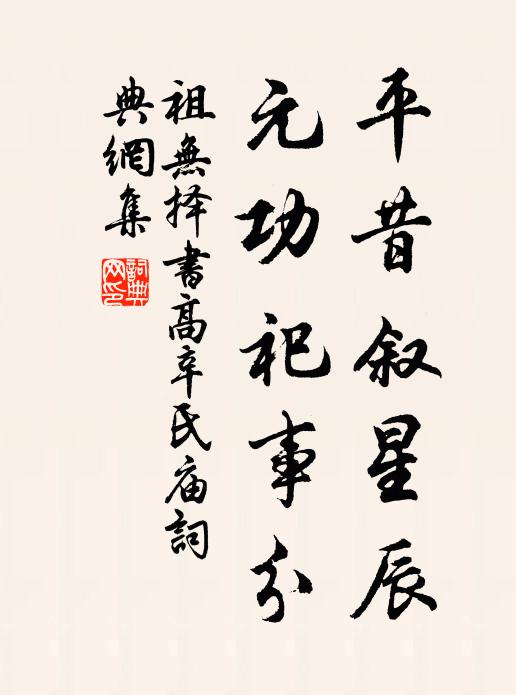 平昔叙星辰
元功祀事分
祖無择書高辛氏庙詞
典網集
詞典网印